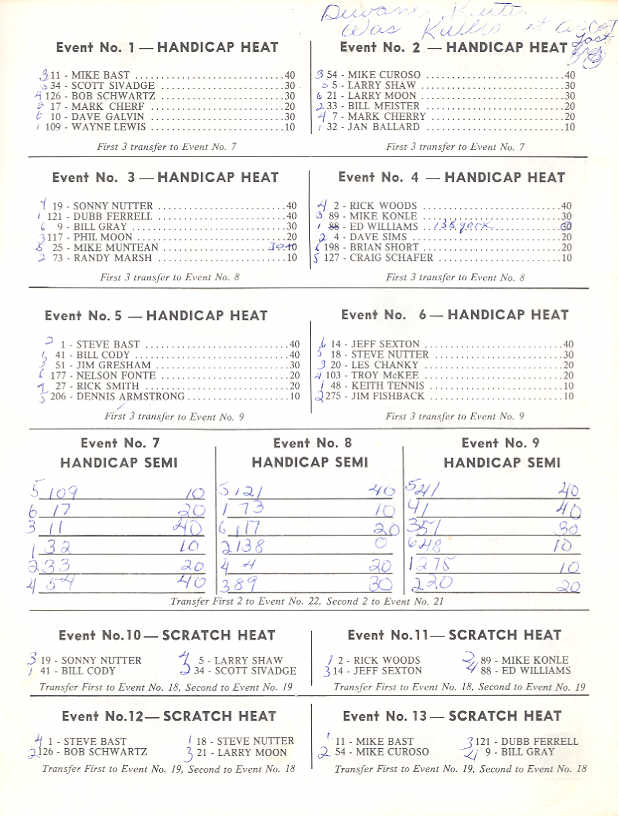 Was Killed at Ascot
Last
Event No. 1 — HANDICAP HEAT
3 11 - MIKE BAST 40
34 - SCOTT SIVADGE 30
4 126 - BOB SCHWARTZ 30
17 - MARK CHERF 20
6 10 - DAVE GALVIN 30
1 109 - WAYNE LEWIS 10
First 3 transfer to Event No. 7
Event No. 2 — HANDICAP HEAT
3 54 - MIKE CUROSO 40
5 5 - LARRY SHAW 30
6 21 - LARRY MOON 30
2 33 - BILL MEISTER 20
4 7 - MARK CHERRY 20
1 32 - JAN BALLARD 10
First 3 transfer to Event No. 7
Event No. 3 — HANDICAP HEAT
4 19 - SONNY NUTTER 40
1 121 - DUBB FERRELL 40
6 9 - BILL GRAY 30
3 117 - PHIL MOON 20
5 25 - MIKE MUNTEAN 30 10
2 73 - RANDY MARSH 10
First 3 transfer to Event No. 8
Event No. 4 — HANDICAP HEAT
4 2 - RICK WOODS 40
3 89 - MIKE KONLE 30
1 88 - ED WILLIAMS 138 30
2 4 - DAVE SIMS 20
6 198 - BRIAN SHORT 20
5 127 - CRAIG SCHAFER 10
First 3 transfer to Event No. 8
Event No. 5 — HANDICAP HEAT
2 1 - STEVE BAST 40
1 41 - BILL CODY 40
51 - JIM GRESHAM 30
6 177 - NELSON FONTE 20
27 - RICK SMITH 20
206 - DENNIS ARMSTRONG 10
First 3 transfer to Event No. 9
Event No. 6 — HANDICAP HEAT
6 14 - JEFF SEXTON 40
5 18 - STEVE NUTTER 30
3 20 - LES CHANKY 20
4 103 - TROY McKEE 20
1 48 - KEITH TENNIS 10
2 275 - JIM FISHBACK 10
First 3 transfer to Event No. 9
Event No. 7
HANDICAP SEMI
5 109 10
6 17 20
3 11 40
1 32 10
2 33 20
4 54 40
Event No. 8
HANDICAP SEMI
5 121 40
1 73 10
6 117 20
2 138 0
4 4 20
3 89 30
Event No. 9
HANDICAP SEMI
5 41 40
4 1 40
3 51 30
6 48 10
1 275 10
2 20 20
Transfer First 2 to Event No. 22, Second 2 to Event No. 21
Event No.10 — SCRATCH HEAT
3 19 - SONNY NUTTER 5 - LARRY SHAW
1 41 - BILL CODY 34 - SCOTT SIVADGE
Transfer First to Event No. 18, Second to Event No. 19
Event No.11 — SCRATCH HEAT
1 2 - RICK WOODS 2 89 - MIKE KONLE
3 14 - JEFF SEXTON 4 88 - ED WILLIAMS
Transfer First to Event No. 18, Second to Event No. 19
Event No.12 — SCRATCH HEAT
4 1 - STEVE BAST 1 18 - STEVE NUTTER
2 126 - BOB SCHWARTZ 3 21 - LARRY MOON
Transfer First to Event No. 19, Second to Event No. 18
Event No. 13 — SCRATCH HEAT
1 11 - MIKE BAST 3 121 - DUBB FERRELL
2 54 - MIKE CUROSO 4 9 - BILL GRAY
Transfer First to Event No. 19, Second to Event No. 18